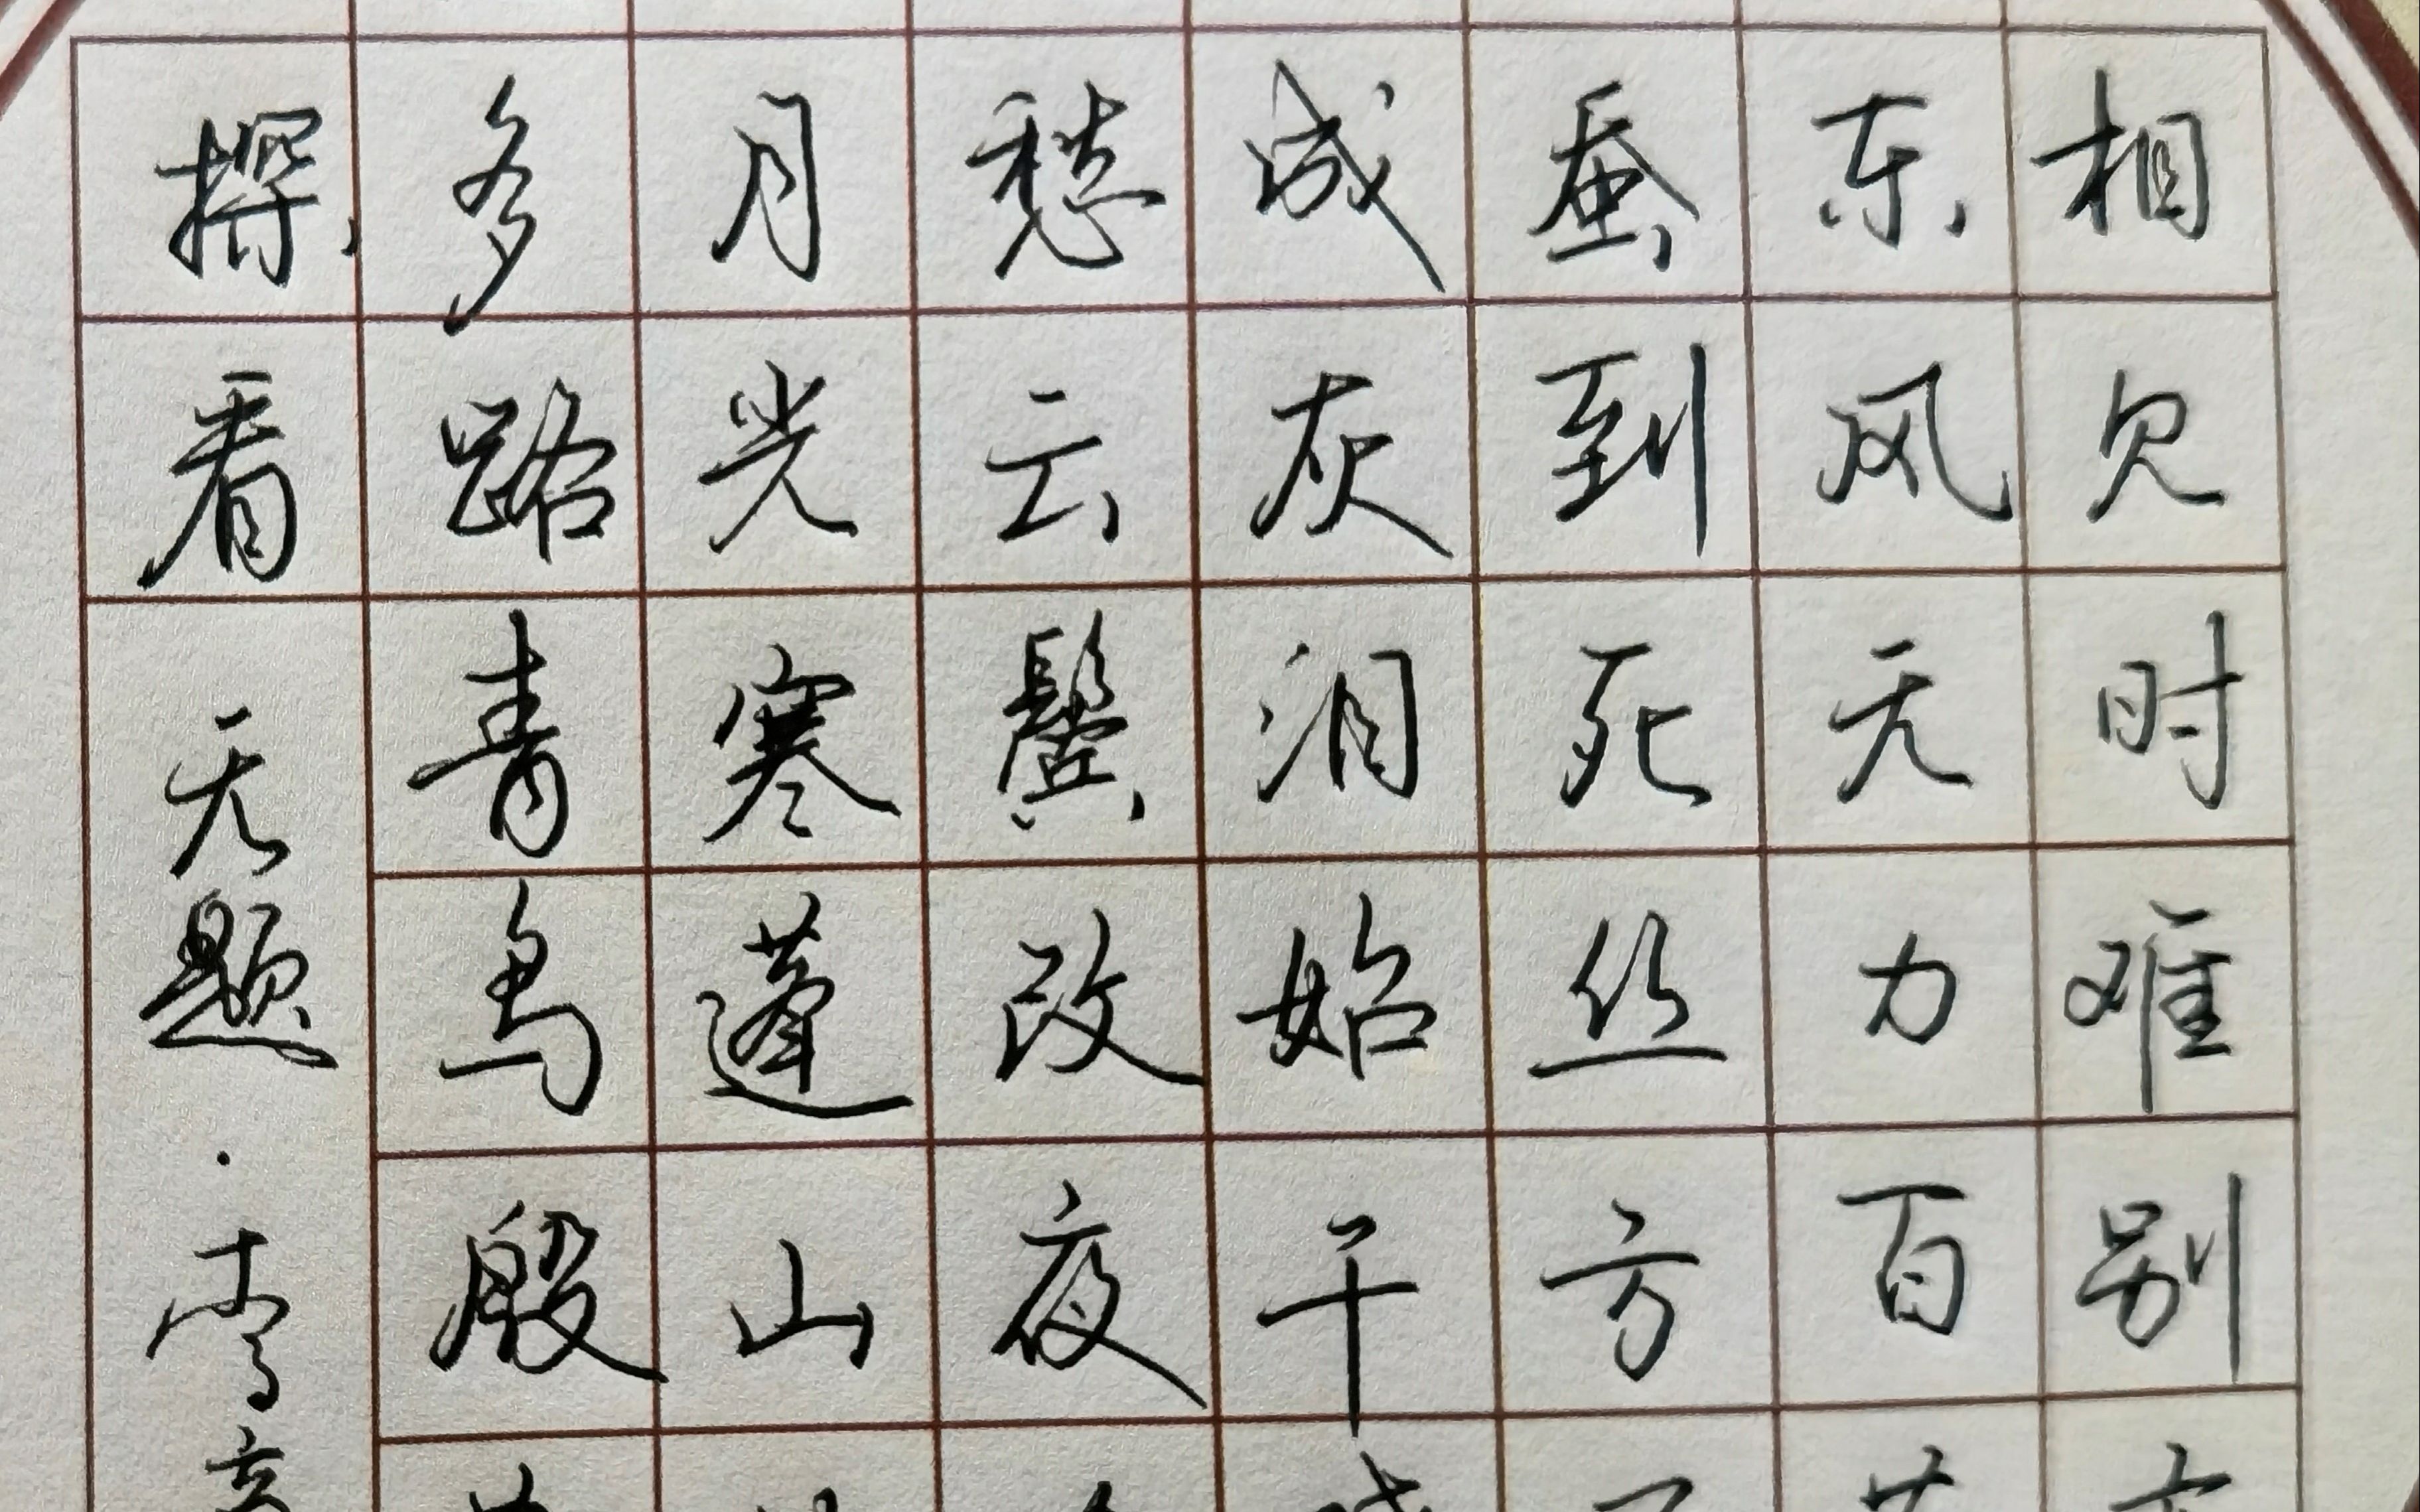 相见时难别
东风无力百
蚕到死丝方
成灰泪始干
愁云鬓改夜
月光寒蓬山
多路青鸟殷
探看 无题·李